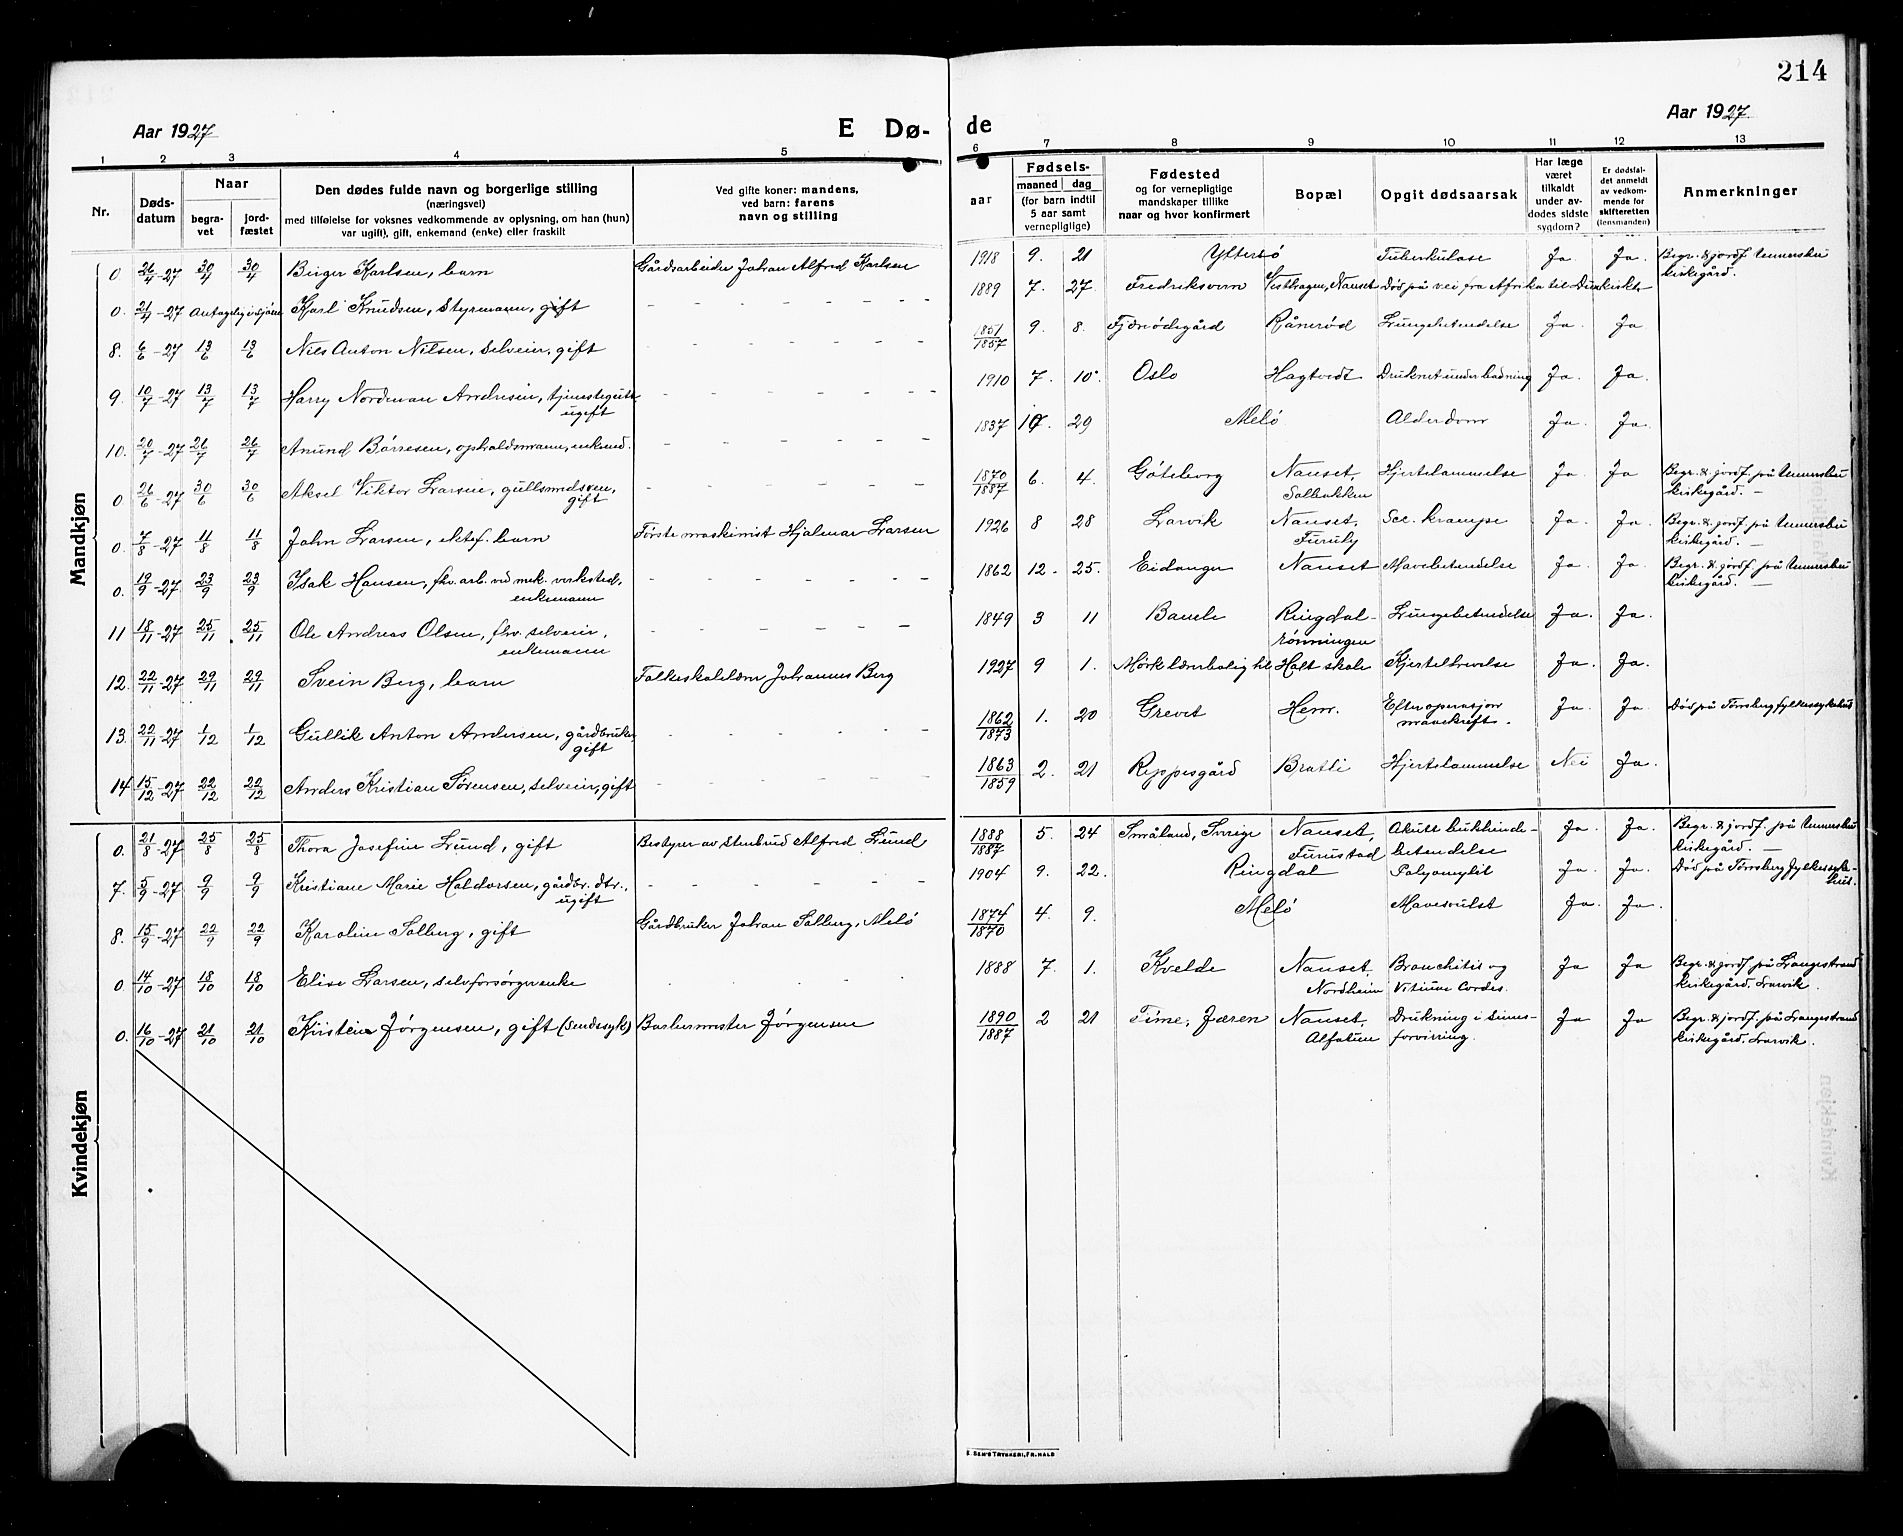 214
Aar 1927
E Dø-
de
Aar 1927.
1 2 3 4 5 6 7 8 9 10 11 12 13
Nr.
Døds-
datum
Naar
begra-
vet
jord-
fæstet
Den dødes fulde navn og borgerlige stilling
(næringsvei)
med tilføielse for voksnes vedkommende av oplysning, om han (hun)
var ugift), gift, enkemand (enke) eller fraskilt
Ved gifte koner: mandens,
ved barn: farens
navn og stilling
aar
Fødsels-
maaned dag
(for barn indtil
5 aar samt
vernepligtige)
Fødested
og for vernepligtige
mandskaper tillike
naar og hvor konfirmert
Bopæl
Opgit dødsaarsak
Har læge
været
tilkaldt
under av-
dødes sidste
sygdom?
Er dødsfal-
det anmeldt
av vedkom-
mende for
skifteretten
(lensmanden)
Anmerkninger
Mandkjøn
0 26/4-27 30/4 30/4 Birger Karlsen, barn Gårdsarbeider Johan Alfred Karlsen 1918 9. 21 Ytterø Tuberkulose Ja Ja. Begr. & jordf. Undersbu
kirkegård.
0. 21/4-27 Antagelig i sjøen Karl Knudsen, Styrmann, gift - - - - - - - 1889 7. 27. Fredriksvern Vesthagen, Nanset Død på vei fra Afrika til Dünkirkt.
8. 6/6-27 13/6 13/6 Nils Anton Nilsen, selveier, gift - - - - - - - 1851/1857 9. 8. Fjærødegård Rånerød Lungebetendelse Ja. Ja
9. 10/7-27 13/7 13/7 Harry Nordman Andresen, tjenestegutt
ugift - - - - - - - 1910 7. 10. Oslo Hagtvedt Druknet under badning Ja. Ja.
10. 20/7-27 26/7 26/7 Anund Børresen, opholdsmann, enkemd. - - - - - - - 1837 10 29 Melø Alderdom Ja. Ja.
0 26/6-27 30/6 30/6 Aksel Viktor Larsen, gullsmedsven,
gift - - - - - - - 1870/1887 6. 4. Göteborg Nanset,
Solbakken Hjertelammelse Ja. Ja Begr. & jordf. på Undersbu
kirkegård. -
0. 7/8-27 11/8 11/8 John Larsen, ektef. barn Første maskinist Hjalmar Larsen 1926 8 28 Larvik Nanset,
Furuly Sec. krampe Ja Ja Begr. & jordf. på Undersbu
kirkegård. -
0. 19/9-27 23/9 23/9 Isak Hansen, fhv. arb. ved mek. verksted,
enkemann - - - - - - - 1862 12- 25. Eidanger Nanset Mavebetendelse Ja. Ja. Begr. & jordf. på Undersbu
kirkegård. -
11 18/11-27 25/11 25/11 Ole Andreas Olsen, fhv. selveier,
enkemann - - - - - - - 1849 3 11 Bamle Ringdal-
rønningen Lungebetendelse Ja. Ja.
12. 22/11-27 29/11 29/11 Svein Berg, barn Folkeskolelærer Johannes Berg 1927 9 1. Mørk lærerbolig til Holt skole Kjertelsvelse Ja. Ja.
13. 22/11-27 1/12 1/12 Gullik Anton Andersen, gårdbruker,
gift - - - - - - - 1862/1873 1. 20 Grevet Hem. Efter operasjon
mavekreft. Ja. Ja. Død på Tønsberg fylkessykehus
14 15/12-27 22/12 22/12 Anders Kristian Sørensen, selveier, gift - - - - - - - 1863/1859 2. 21 Reppesgård Bratli Hjertelammelse Nei Ja.
Kvindekjøn
0. 21/8-27 25/8 25/8 Thora Josefine Lund, gift Bestyrer av stenbrud Alfred Lund 1888/1887 5. 24 Småland, Sverige Nanset,
Furustad Akutt bukhinde-
betendelse Ja. Ja. Begr. & jordf. på Undersbu
kirkegård. -
7. 5/9-27 9/9 9/9 Kristiane Marie Haldorsen, gårdbr. dtr.,
ugift - - - - - - - 1904 9. 22. Ringdal Polyomyelit Ja. Ja. Død på Tönsberg fylkessyke-
hus.
8. 15/9-27 22/9 22/9 Karoline Solberg, gift Gårdbruker Johan Solberg, Melø 1874/1870 4. 9. Melø Mavesvulst Ja. Ja.
0. 14/10-27 18/10 18/10 Elise Larsen, selvforsørger enke 1888 7. 1. Kvelde Nanset,
Nordheim Bronchitis og
Vitium Cordis. Ja Ja Begr. & jordf. på Langestrand
kirkegård. Larvik.
0. 16/10-27 21/10 21/10 Kristina Jørgensen, gift (Sindssyk) Barbermester Jørgensen 1890/1887 2 21 Time, Jæren Nanset,
Alfatun Drukning i sinns-
forvirring. Ja Ja Begr. & jordf. på Langestrand
kirkegård. Larvik.